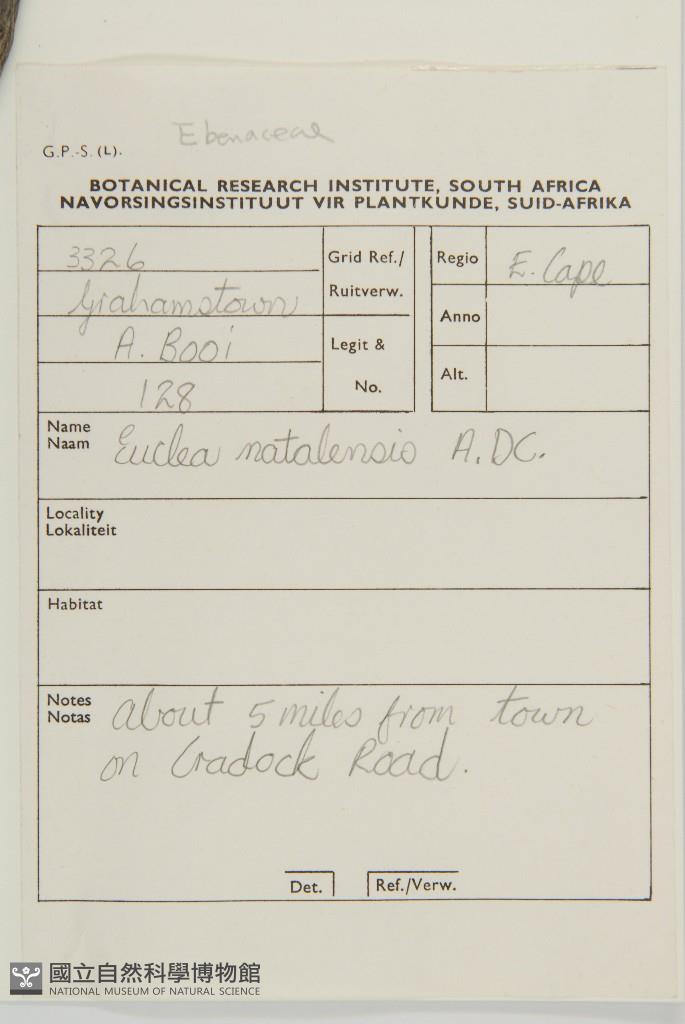 Ebenaceae
G.P.-S. (L).
BOTANICAL RESEARCH INSTITUTE, SOUTH AFRICA
NAVORSINGSINSTITUUT VIR PLANTKUNDE, SUID-AFRIKA
3326
Grahamstown
Grid Ref./
Ruitverw.
A. Booi
128
Legit &
No.
Regio E. Cape
Anno
Alt.
Name
Naam
Euclea natalensis A.DC.
Locality
Lokaliteit
Habitat
Notes
Notas
about 5 miles from town
on Cradock Road.
Det.
Ref./Verw.
國立自然科學博物館
NATIONAL MUSEUM OF NATURAL SCIENCE